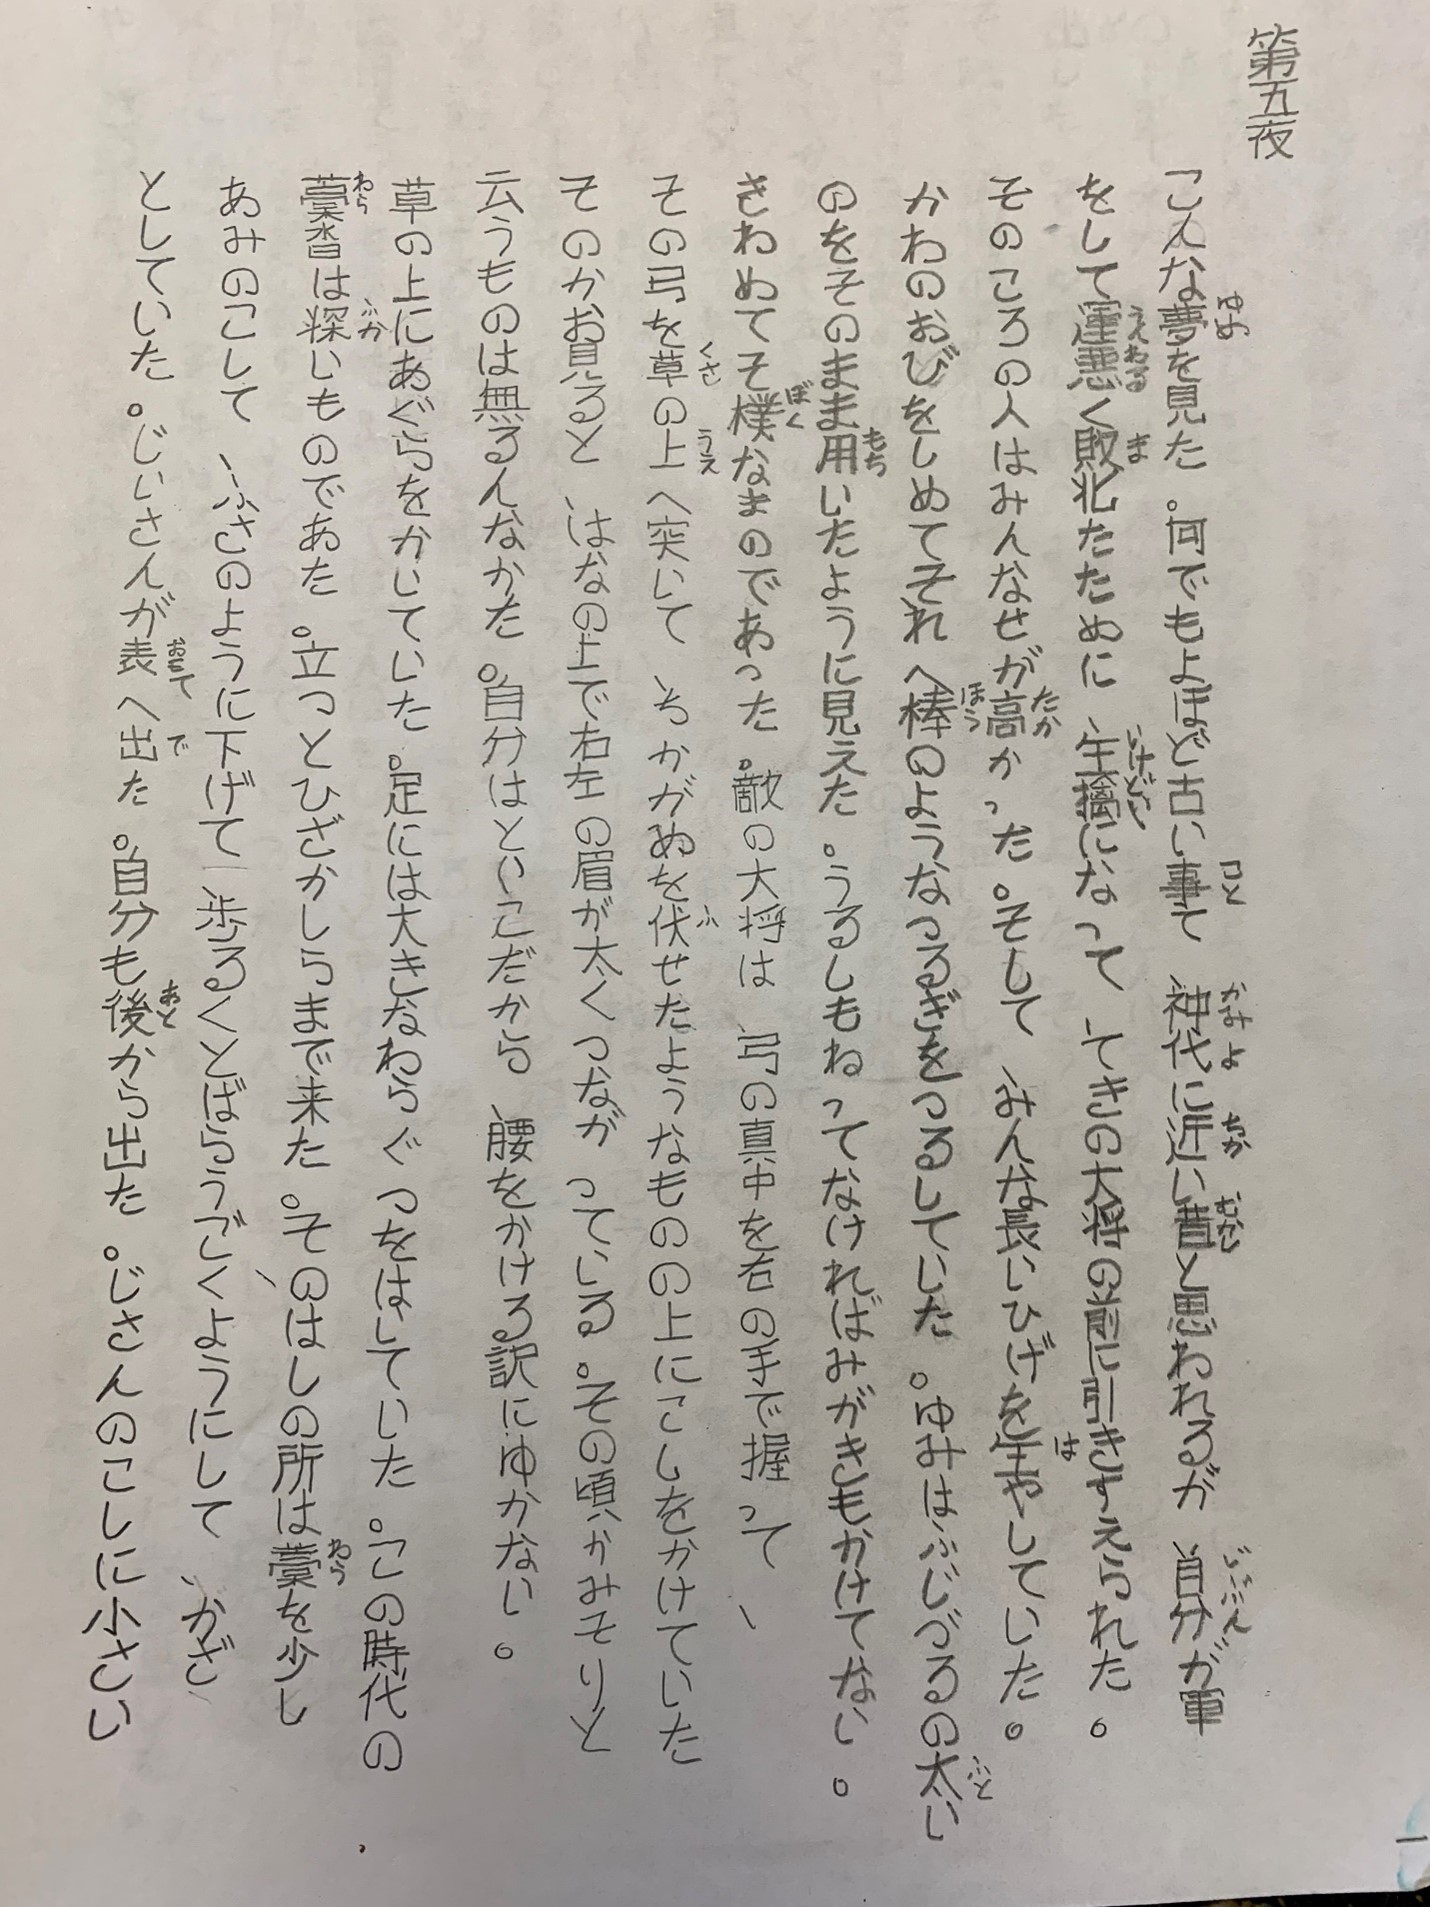 第五夜
こんな夢を見た。何でもよほど古い事で、神代に近い昔と思われるが、自分が軍
をして運悪く敗北たために、生擒になって、てきの大将の前に引きすえられた。
そのころの人はみんなせが高かった。そして、みんな長いひげを生やしていた。
かわのおびをしめてそれへ棒のようなつるぎをつるしていした。ゆみはふじづるの太い
のをそのまま用いたように見えた。うるしもねってなければみがきもかけてない。
きわめてそ樸なまのであった。敵の大将は、弓の真中を右の手で握って、
その弓を草の上へ突いて、ちかがぬを伏せたようなものの上にこしをかけていた
そのかお見ると、はなの上で右左の眉が太くつながっている。その頃、かみそりと
云うものは無るんなかた。自分はといこだから、腰をかける訳にゆかない。
草の上にあぐらをかいていた。足には大きなわらぐつをはしていた。この時代の
藁沓は深いものであた。立つとひざかしらまで来た。そのはしの所は藁を少し
あみのこして、ふさのように下げて、歩るくとばらうごくようにして、かざ
としていた。じいさんが表へ出た。自分も後から出た。じさんのこしに小さい
一